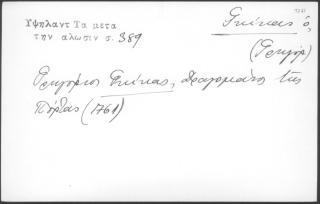 Υψηλαντ Τα μετα
την αλωσιν σ. 389
Γκίκας ὁ,
(Γρηγόρ)
Γρηγόριος Γκίκας, Δραγομάνος τῆς
Πόρτας (1761)